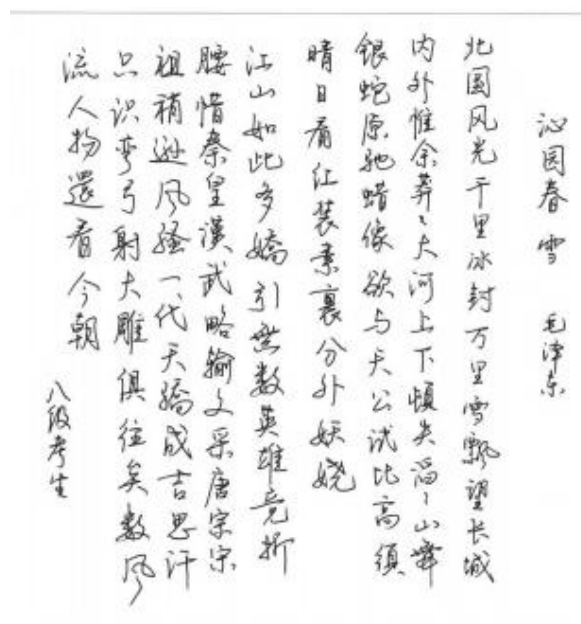 沁园春 雪 毛泽东
北国风光千里冰封万里雪飘望长城
内外惟余莽々大河上下顿失滔々山舞
银蛇原驰蜡像欲与天公试比高须
晴日看红装素裹分外妖娆
江山如此多嬌引無数英雄竞折
腰惜秦皇漢武略输文采唐宗宋
祖稍逊风骚一代天骄成吉思汗
只识弯弓射大雕俱往矣数风
流人物還看今朝
八级考生